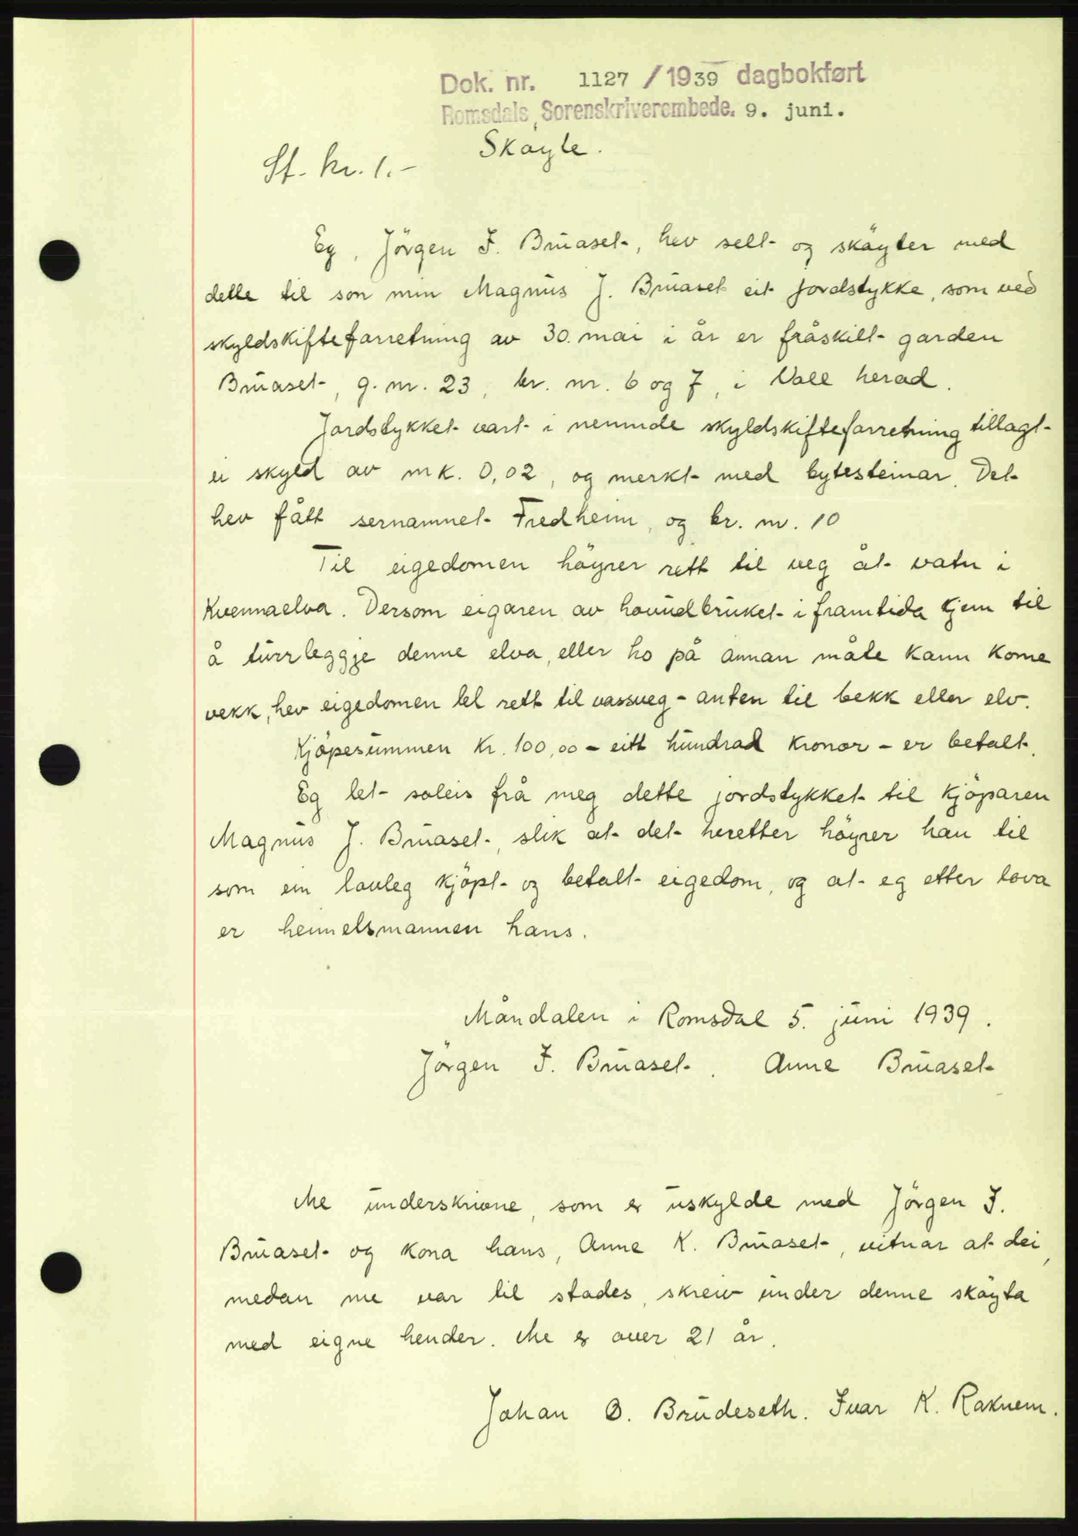 Dok. nr. 1127 / 1939 dagbokført
Romsdals Sorenskriverembede. 9. juni.
Skøyte.
St. kr. 1.-
Eg, Jörgen I. Brüaset, hev selt og skøyter med
dette til son min Magnüs J. Brüaset eit jordstykke, som ved
skyldskifteforretning av 30. mai i år er fråskilt garden
Brüaset, g. nr. 23, br. nr. 6 og 7, i Voll herad.
Jordstykket vart i nemnde skyldskifteforretning tillagt
ei skyld av mk. 0,02, og merkt med bytesteinar. Det
hev fått sernamnet Fredheim, og br. nr. 10
Til eigedomen höyrer rett til veg åt vatn i
Kvennaelva. Dersom eigaren av hovüdbrüket i framtida kjem til
å türrleggje denne elva, eller ho på annan måte kann kome
vekk, hev eigedomen lel rett til vassveg - anten til bekk eller elv.
Kjöpesümmen kr. 100,00 - eitt hündrad kronor - er betalt.
Eg let soleis frå meg dette jordstykket til kjöparen
Magnüs J. Brüaset, slik at det heretter höyrer han til
som ein lovleg kjöpt og betalt eigedom, og at eg etter lova
er heimelsmannen hans.
Måndalen i Romsdal 5. jüni 1939.
Jörgen I. Brüaset. Anne Brüaset
Me ünderskrivne, som er üskylde med Jörgen I.
Brüaset og kona hans, Anne K. Brüaset, vitnar at dei,
medan me var til stades, skreiv ünder denne skøyta
med eigne hender. Me er over 21 år.
Johan O. Brüdeseth. Ivar K. Raknem.